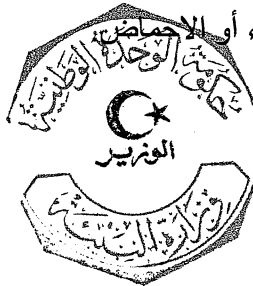 ، أو الاحماض
حكومة الوحدة الوطنية
الوزير
وزارة البيئة